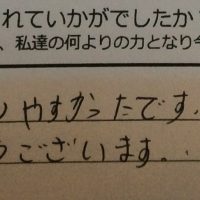 れていかがでしたか
、私達の何よりの力となり今
やすかったです。
ございます。